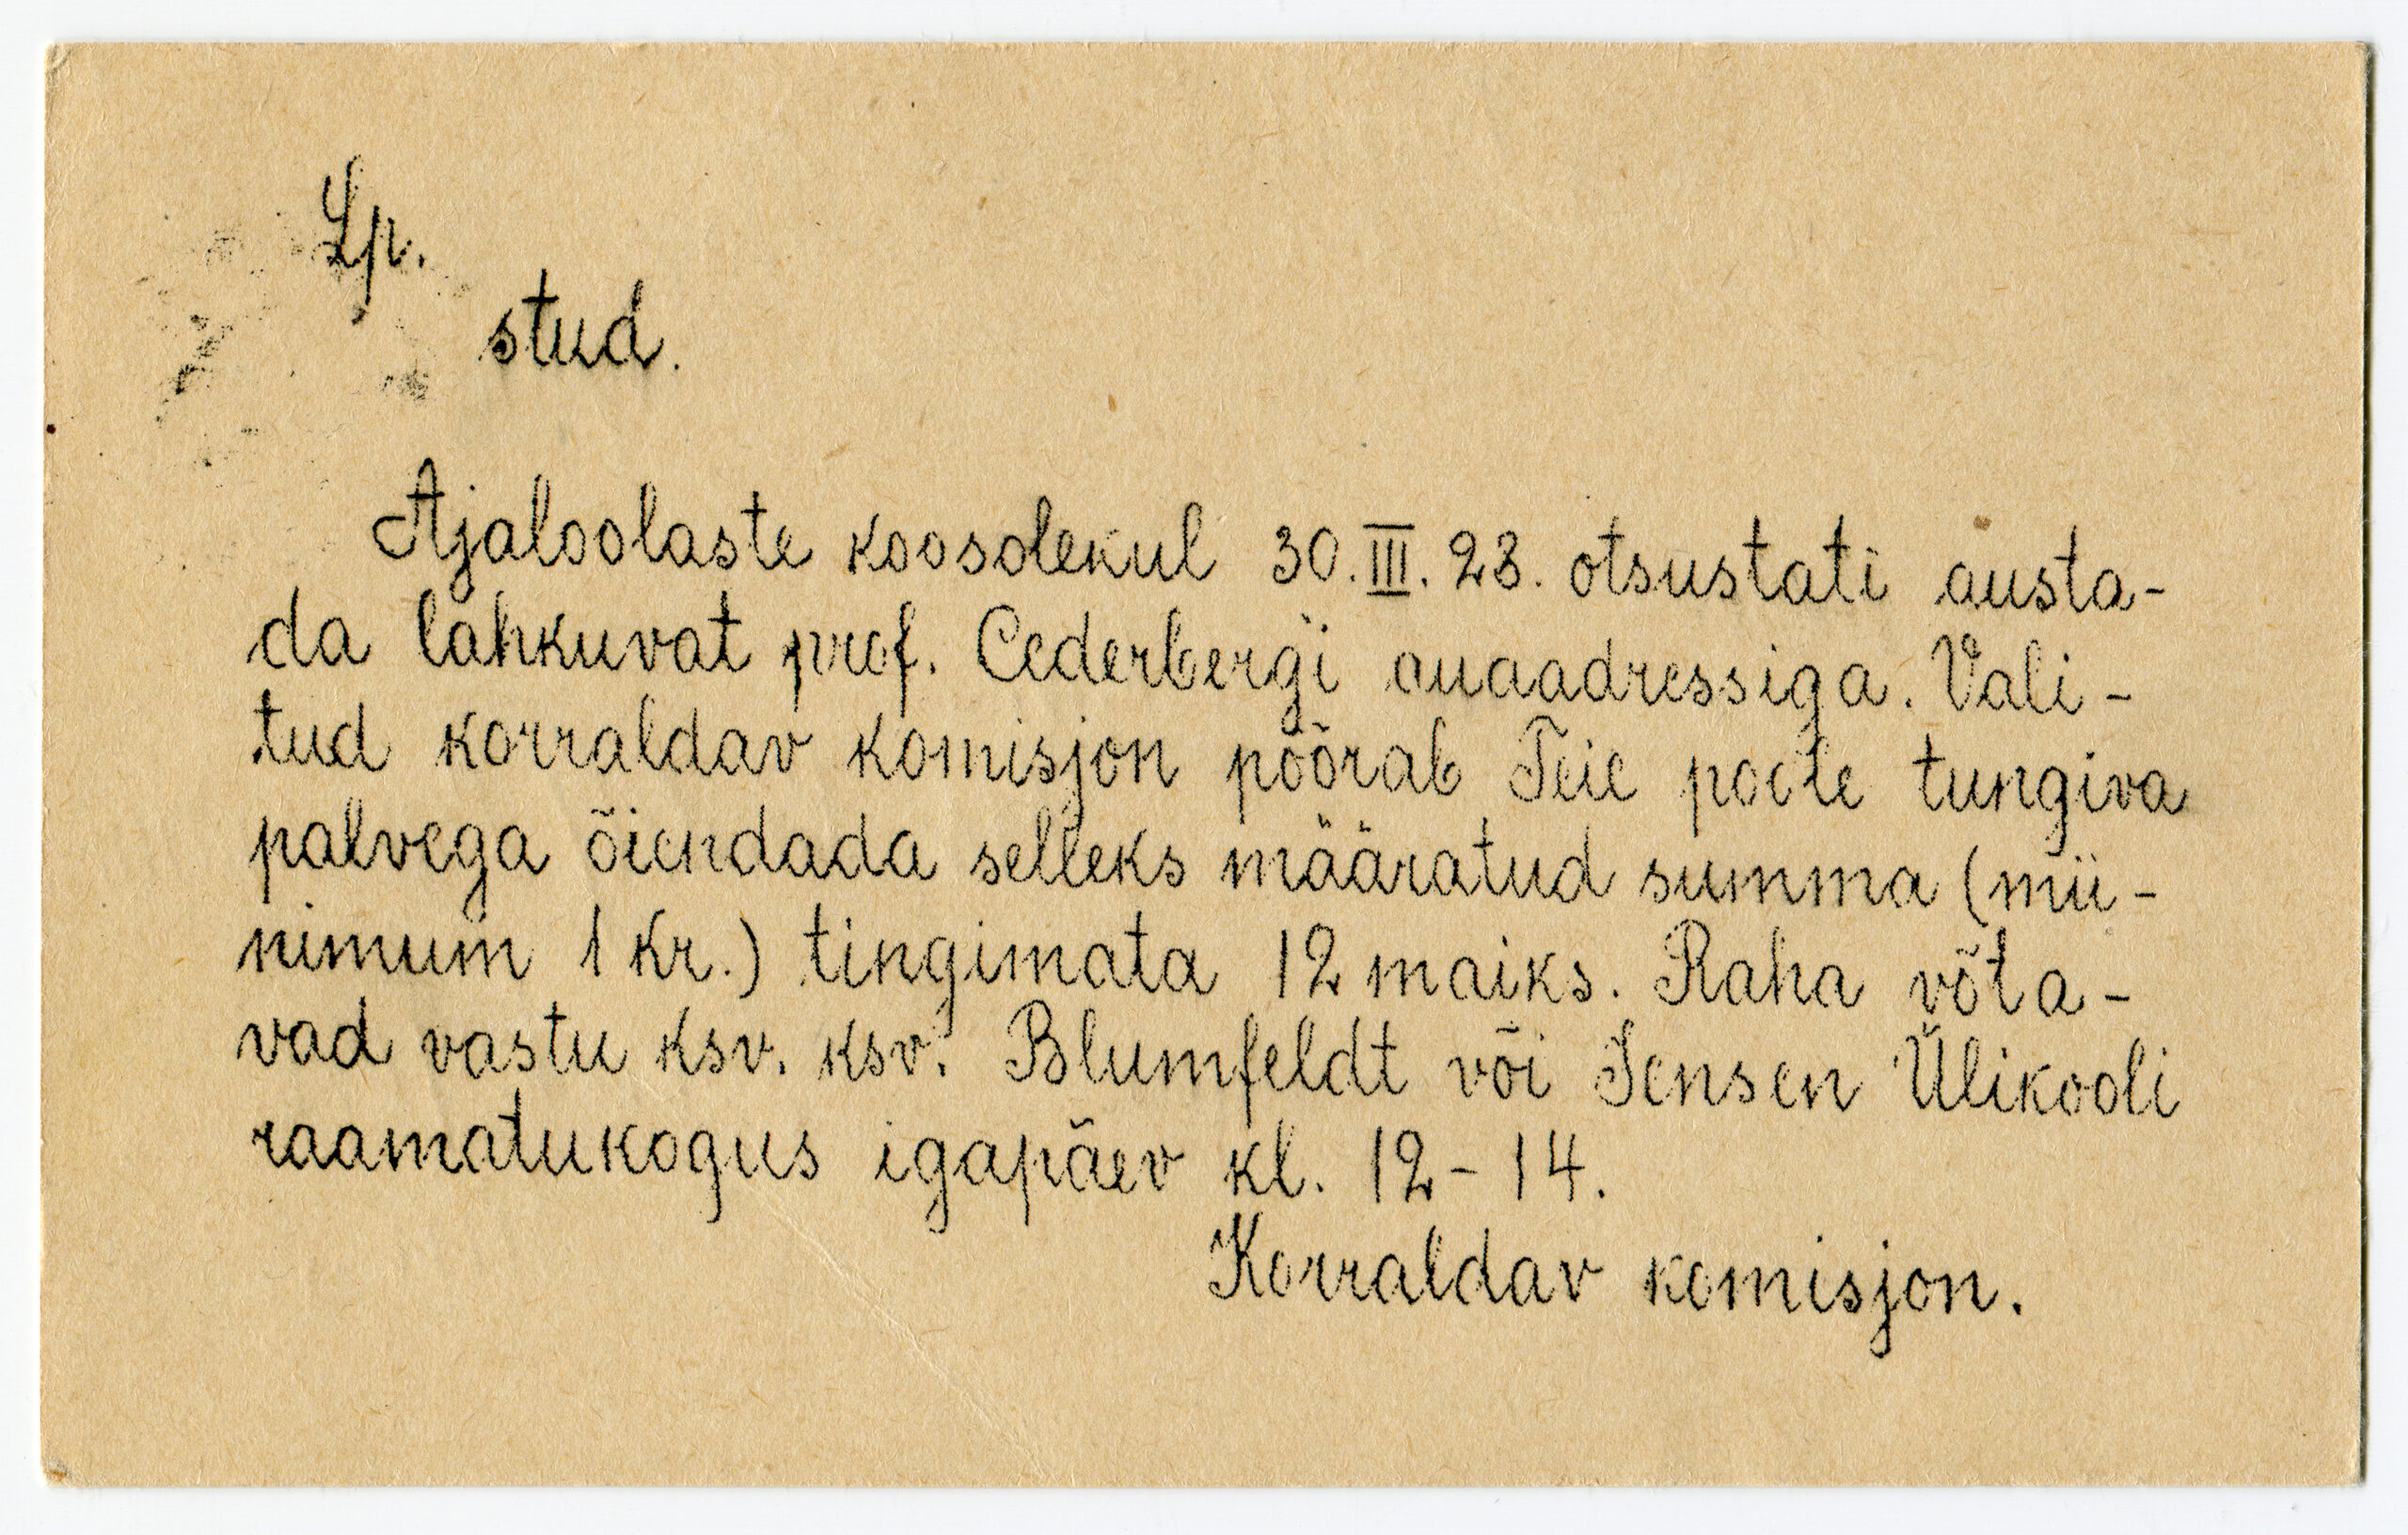 Lp.
stud.
Ajaloolaste koosolekul 30.III.28. otsustati austa-
da lahkuvat prof. Cederbergi auaadressiga. Vali-
tud korraldav komisjon pöörab Teie poole tungiva
palvega õiendada selleks määratud summa (mii-
nimum 1 kr.) tingimata 12 maiks. Raha võta-
vad vastu ksv. ksv. Blumfeldt või Jensen Ülikooli
raamatukogus igapäev kl. 12-14.
Korraldav komisjon.